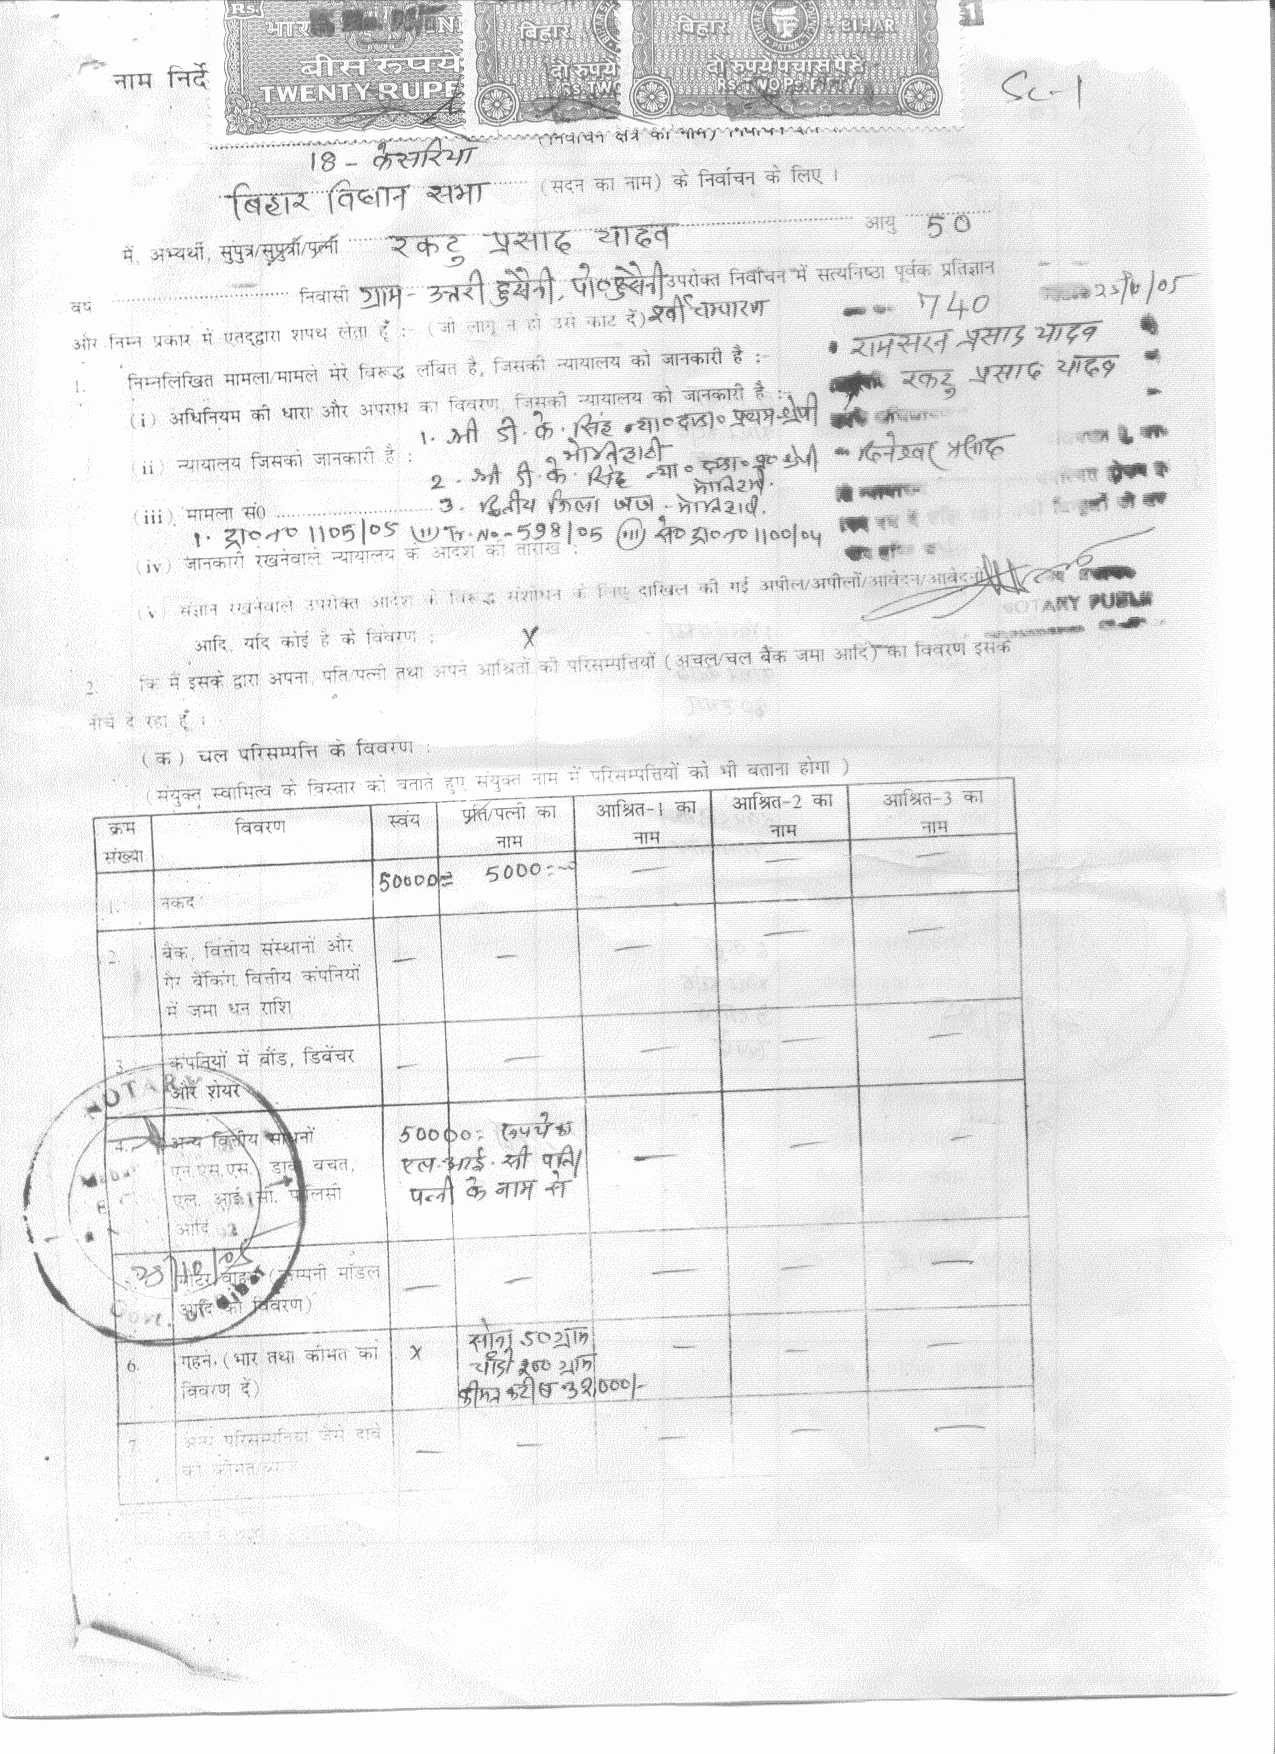 Rs.
भार
बिहार
बिहार
BIHAR
बीस रुपये
दो रुपये
दो रुपये पचास पैसे
TWENTY RUPE
RS. TWO
नाम निर्दे
Sc-1
(निर्वाचन क्षेत्र का नाम)
18 - केसरिया
बिहार विधान सभा (सदन का नाम) के निर्वाचन के लिए ।
में, अभ्यर्थी, सुपुत्र/सुपुत्री/पत्नी रकटु प्रसाद यादव आयु 50
वर्ष निवासी ग्राम- उत्तरी हुसैनी, पो० हुसैनी उपरोक्त निर्वाचन में सत्यनिष्ठा पूर्वक प्रतिज्ञान
और निम्न प्रकार में एतद्द्वारा शपथ लेता हूँ :- (जो लागू न हो उसे काट दें) चम्पारण
740
रामसरन प्रसाद यादव
रकटु प्रसाद यादव
1. निम्नलिखित मामला/मामले मेरे विरूद्ध लंबित है, जिसकी न्यायालय को जानकारी है :-
(i) अधिनियम की धारा और अपराध का विवरण, जिसकी न्यायालय को जानकारी है :-
1. श्री डी. के. सिंह न्या० दण्डा० प्रथम श्रेणी
(ii) न्यायालय जिसको जानकारी है : मोतिहारी
2. श्री डी. के. सिंह न्या० दण्डा० प्र० श्रेणी
प्रसाद
(iii) मामला सं0 3. द्वितीय जिला जज -
1. ट्रा० न० 1105/05 (ii) Tr. No. - 598/05 (iii) से० ट्रा० न० 1100/04
(iv) जानकारी रखनेवाले न्यायालय के आदेश की तारीख :
(v) संज्ञान रखनेवाले उपरोक्त आदेश के विरूद्ध संशोधन के लिए दाखिल की गई अपील/अपीलों/आवेदन/आवेदनों
NOTARY PUBLIC
आदि, यदि कोई है के विवरण : X
2. कि मैं इसके द्वारा अपना, पति/पत्नी तथा अपने आश्रितों की परिसम्पत्तियों (अचल/चल बैंक जमा आदि) का विवरण इसके
नीचे दे रहा हूँ ।
(क) चल परिसम्पत्ति के विवरण :
(संयुक्त स्वामित्व के विस्तार को बताते हुए संयुक्त नाम में परिसम्पत्तियों को भी बताना होगा )
क्रम संख्या विवरण स्वंय पति/पत्नी का नाम आश्रित-1 का नाम आश्रित-2 का नाम आश्रित-3 का नाम
1. नकद 50000= 5000=- — — —
2. बैंक, वित्तीय संस्थानों और — — — — —
गैर बैंकिंग वित्तीय कंपनियों
में जमा धन राशि
3. कंपनियों में बौंड, डिबेंचर — — — — —
और शेयर
4. अन्य वित्तीय साधनों 50000= रूपये का — — —
एन.एस.एस., डाक बचत, एल. आई. सी पति/
एल. आई. सी. पालिसी पत्नी के नाम से
आदि
मोटर वाहन (कम्पनी मॉडल — — — — —
आदि का विवरण)
6. गहने. (भार तथा कीमत का X सोना 50 ग्राम — — —
विवरण दें) चाँदी 200 ग्राम
कीमत करीब 32,000/-
7. अन्य परिसम्पत्तियां जैसे दावे — — — — —
NOTARY
Govt. of Bihar